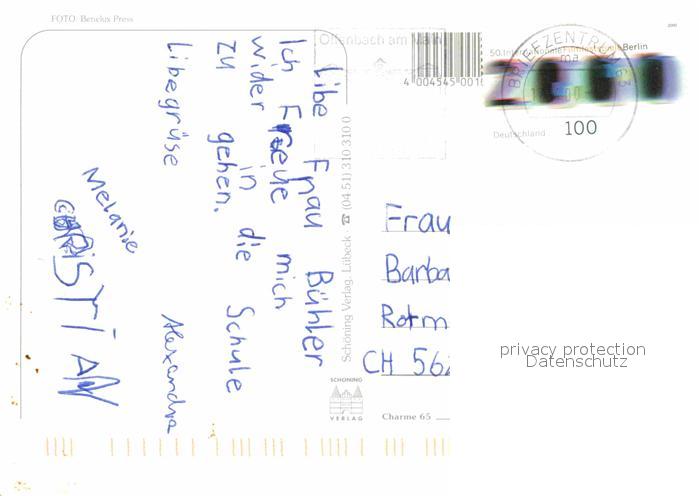 FOTO: Benelux Press
Offenbach am Main
4 004545 001
50. Internationale Filmfestspiele Berlin
BRIEFZENTRUM 63
Deutschland
100
Libe Frau Bühler
Ich Freue mich
wider in die Schule
zu gehen.
Libegrüse Alexandra
Melanie
CHRISTIAN
Schöning Verlag, Lübeck ☎ (04 51) 310 310 0
Frau
Barba
Rotm
CH 562
SCHÖNING
VERLAG
Charme 65
privacy protection
Datenschutz